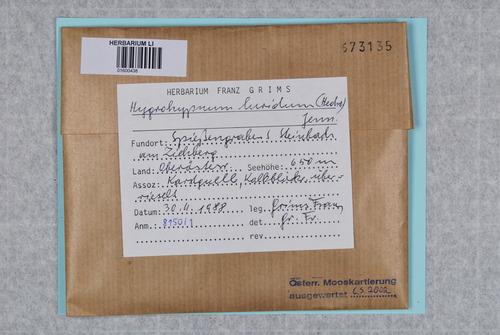 HERBARIUM LI
01600438
673135
HERBARIUM FRANZ GRIMS
Hygrohypnum luridum (Hedw.)
Jenn.
Fundort: Steinbach
am Ziehberg
Land: Oberösterr. Seehöhe: 650 m
Assoz: Karstquelle, Kalkblöcke, über-
rieselt
Datum: 30.4.1988 leg. Grims Franz
Anm.: 8150/1 det. Gr. Fr.
rev.
Österr. Mooskartierung
ausgewertet 6.3.2002